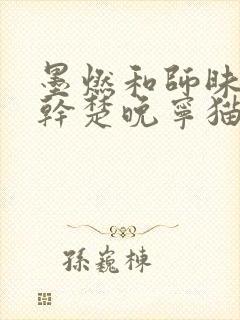 墨燃和師昧
幹楚晚寧猫
孫巍棟